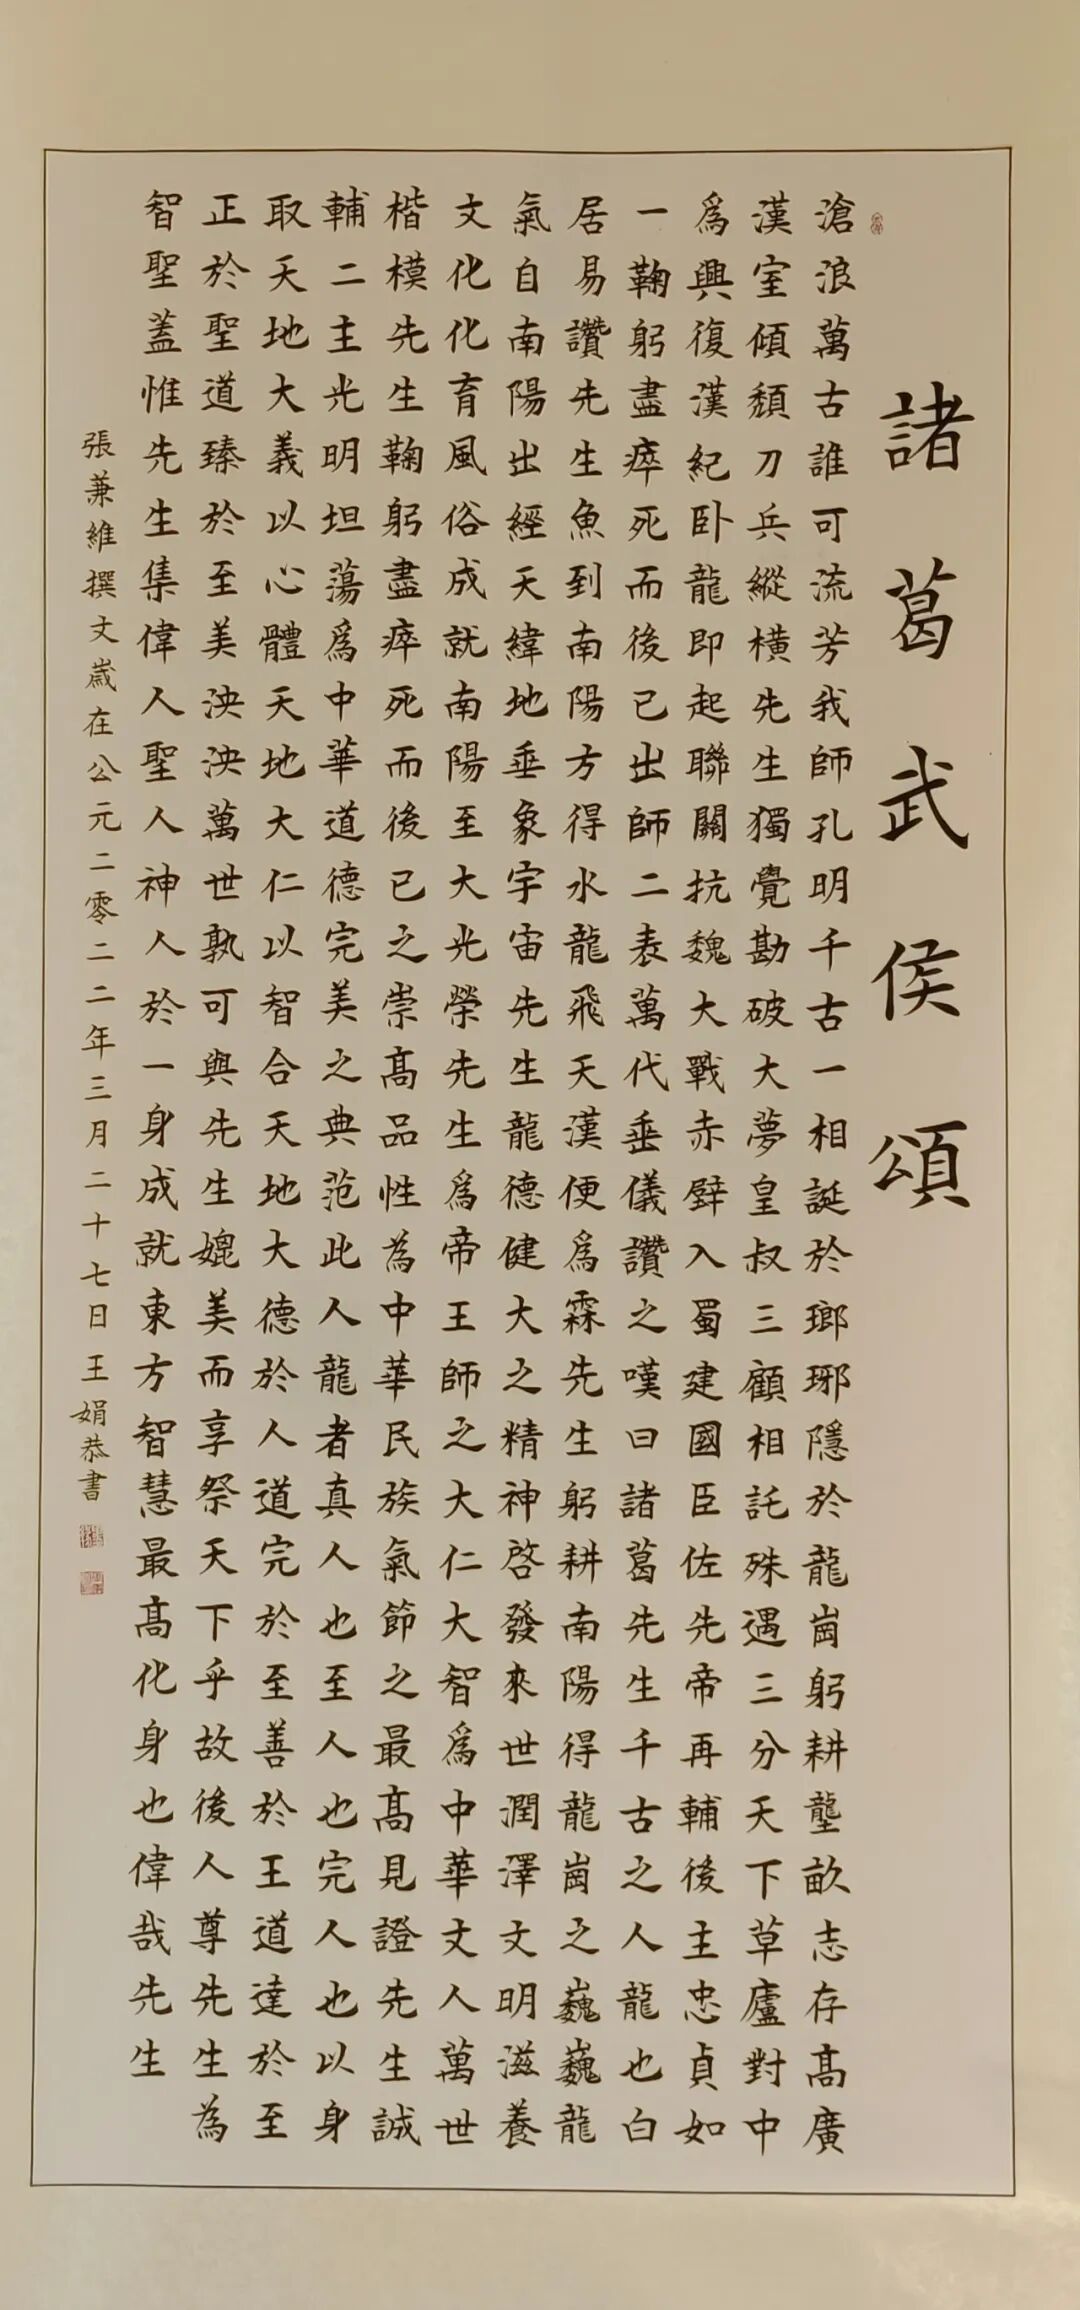 諸葛武侯頌
滄浪萬古誰可流芳我師孔明千古一相誕於瑯琊隱於龍崗躬耕壟畝志存高廣
漢室傾頹刀兵縱橫先生獨覺勘破大夢皇叔三顧相託殊遇三分天下草廬對中
為興復漢紀卧龍即起聯關抗魏大戰赤壁入蜀建國臣佐先帝再輔後主忠貞如
一鞠躬盡瘁死而後已出師二表萬代垂儀讚之嘆曰諸葛先生千古之人龍也白
居易讚先生魚到南陽方得水龍飛天漢便為霖先生躬耕南陽得龍崗之巍巍龍
氣自南陽出經天緯地垂象宇宙先生龍德健大之精神啓發來世潤澤文明滋養
文化化育風俗成就南陽至大光榮先生為帝王師之大仁大智為中華文人萬世
楷模先生鞠躬盡瘁死而後已之崇高品性為中華民族氣節之最高見證先生誠
輔二主光明坦蕩為中華道德完美之典范此人龍者真人也至人也完人也以身
取天地大義以心體天地大仁以智合天地大德於人道完於至善於王道達於至
正於聖道臻於至美泱泱萬世孰可與先生媲美而享祭天下乎故後人尊先生為
智聖蓋惟先生集偉人聖人神人於一身成就東方智慧最高化身也偉哉先生
張兼維撰文歲在公元二零二二年三月二十七日王娟恭書